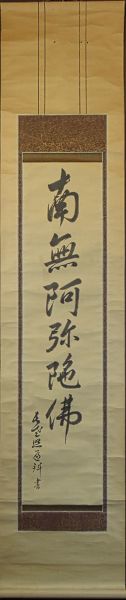 南無阿弥陀佛
書